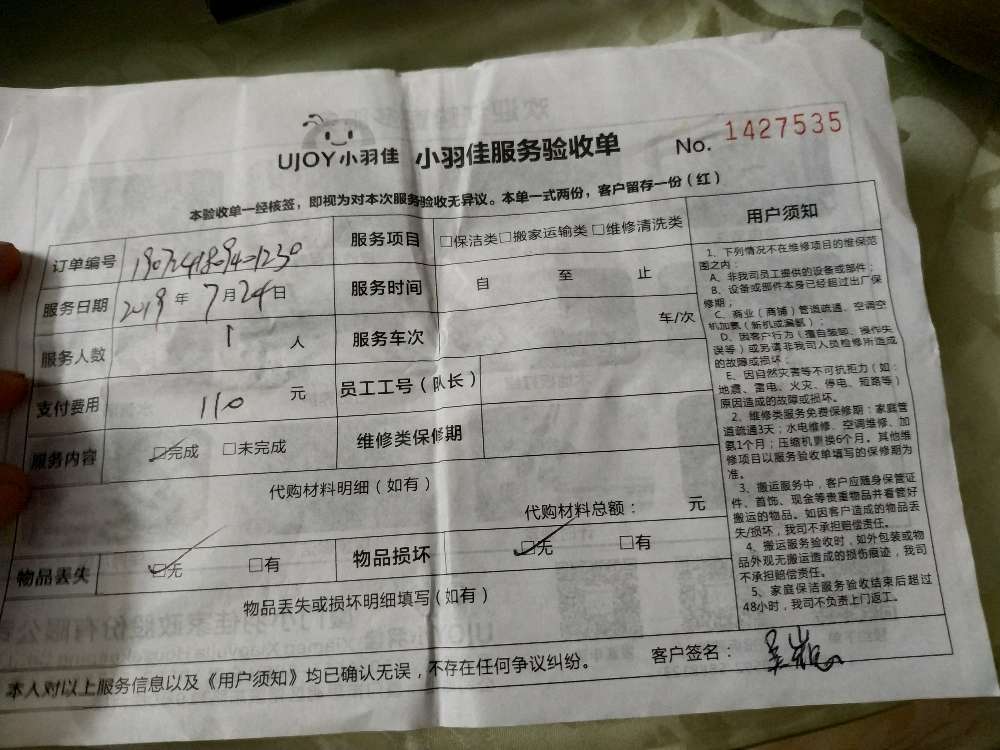 UJOY小羽佳 小羽佳服务验收单 No. 1427535
本验收单一经核签，即视为对本次服务验收无异议。本单一式两份，客户留存一份（红）
订单编号
服务项目 □保洁类□搬家运输类□维修清洗类
服务日期 2019年7月24日
服务时间 自 至 止
服务人数 1 人
服务车次 车/次
支付费用 110 元
员工工号（队长）
服务内容 □完成 □未完成
维修类保修期
代购材料明细（如有）
代购材料总额： 元
物品丢失 □无 □有
物品损坏 □无 □有
物品丢失或损坏明细填写（如有）
用户须知
1、下列情况不在维修项目的维保范
围之内：
A、非我司员工提供的设备或部件；
B、设备或部件本身已经超过出厂保
修期；
C、商业（商铺）管道疏通、空调空
机加氨（新机或漏氨）；
D、因客户行为（擅自装卸、操作失
误等）或另请非我司人员检修所造成
的故障或损坏；
E、因自然灾害等不可抗拒力（如：
地震、雷电、火灾、停电、短路等）
原因造成的故障或损坏。
2、维修类服务免费保修期：家庭管
道疏通3天；水电维修、空调维修、加
氨1个月；压缩机更换6个月。其他维
修项目以服务验收单填写的保修期为
准。
3、搬运服务中，客户应随身保管证
件、首饰、现金等贵重物品并看管好
搬运的物品。如因客户造成的物品丢
失/损坏，我司不承担赔偿责任。
4、搬运服务验收时，如外包装或物
品外观无搬运造成的损伤痕迹，我司
不承担赔偿责任。
5、家庭保洁服务验收结束后超过
48小时，我司不负责上门返工。
本人对以上服务信息以及《用户须知》均已确认无误，不存在任何争议纠纷。 客户签名：